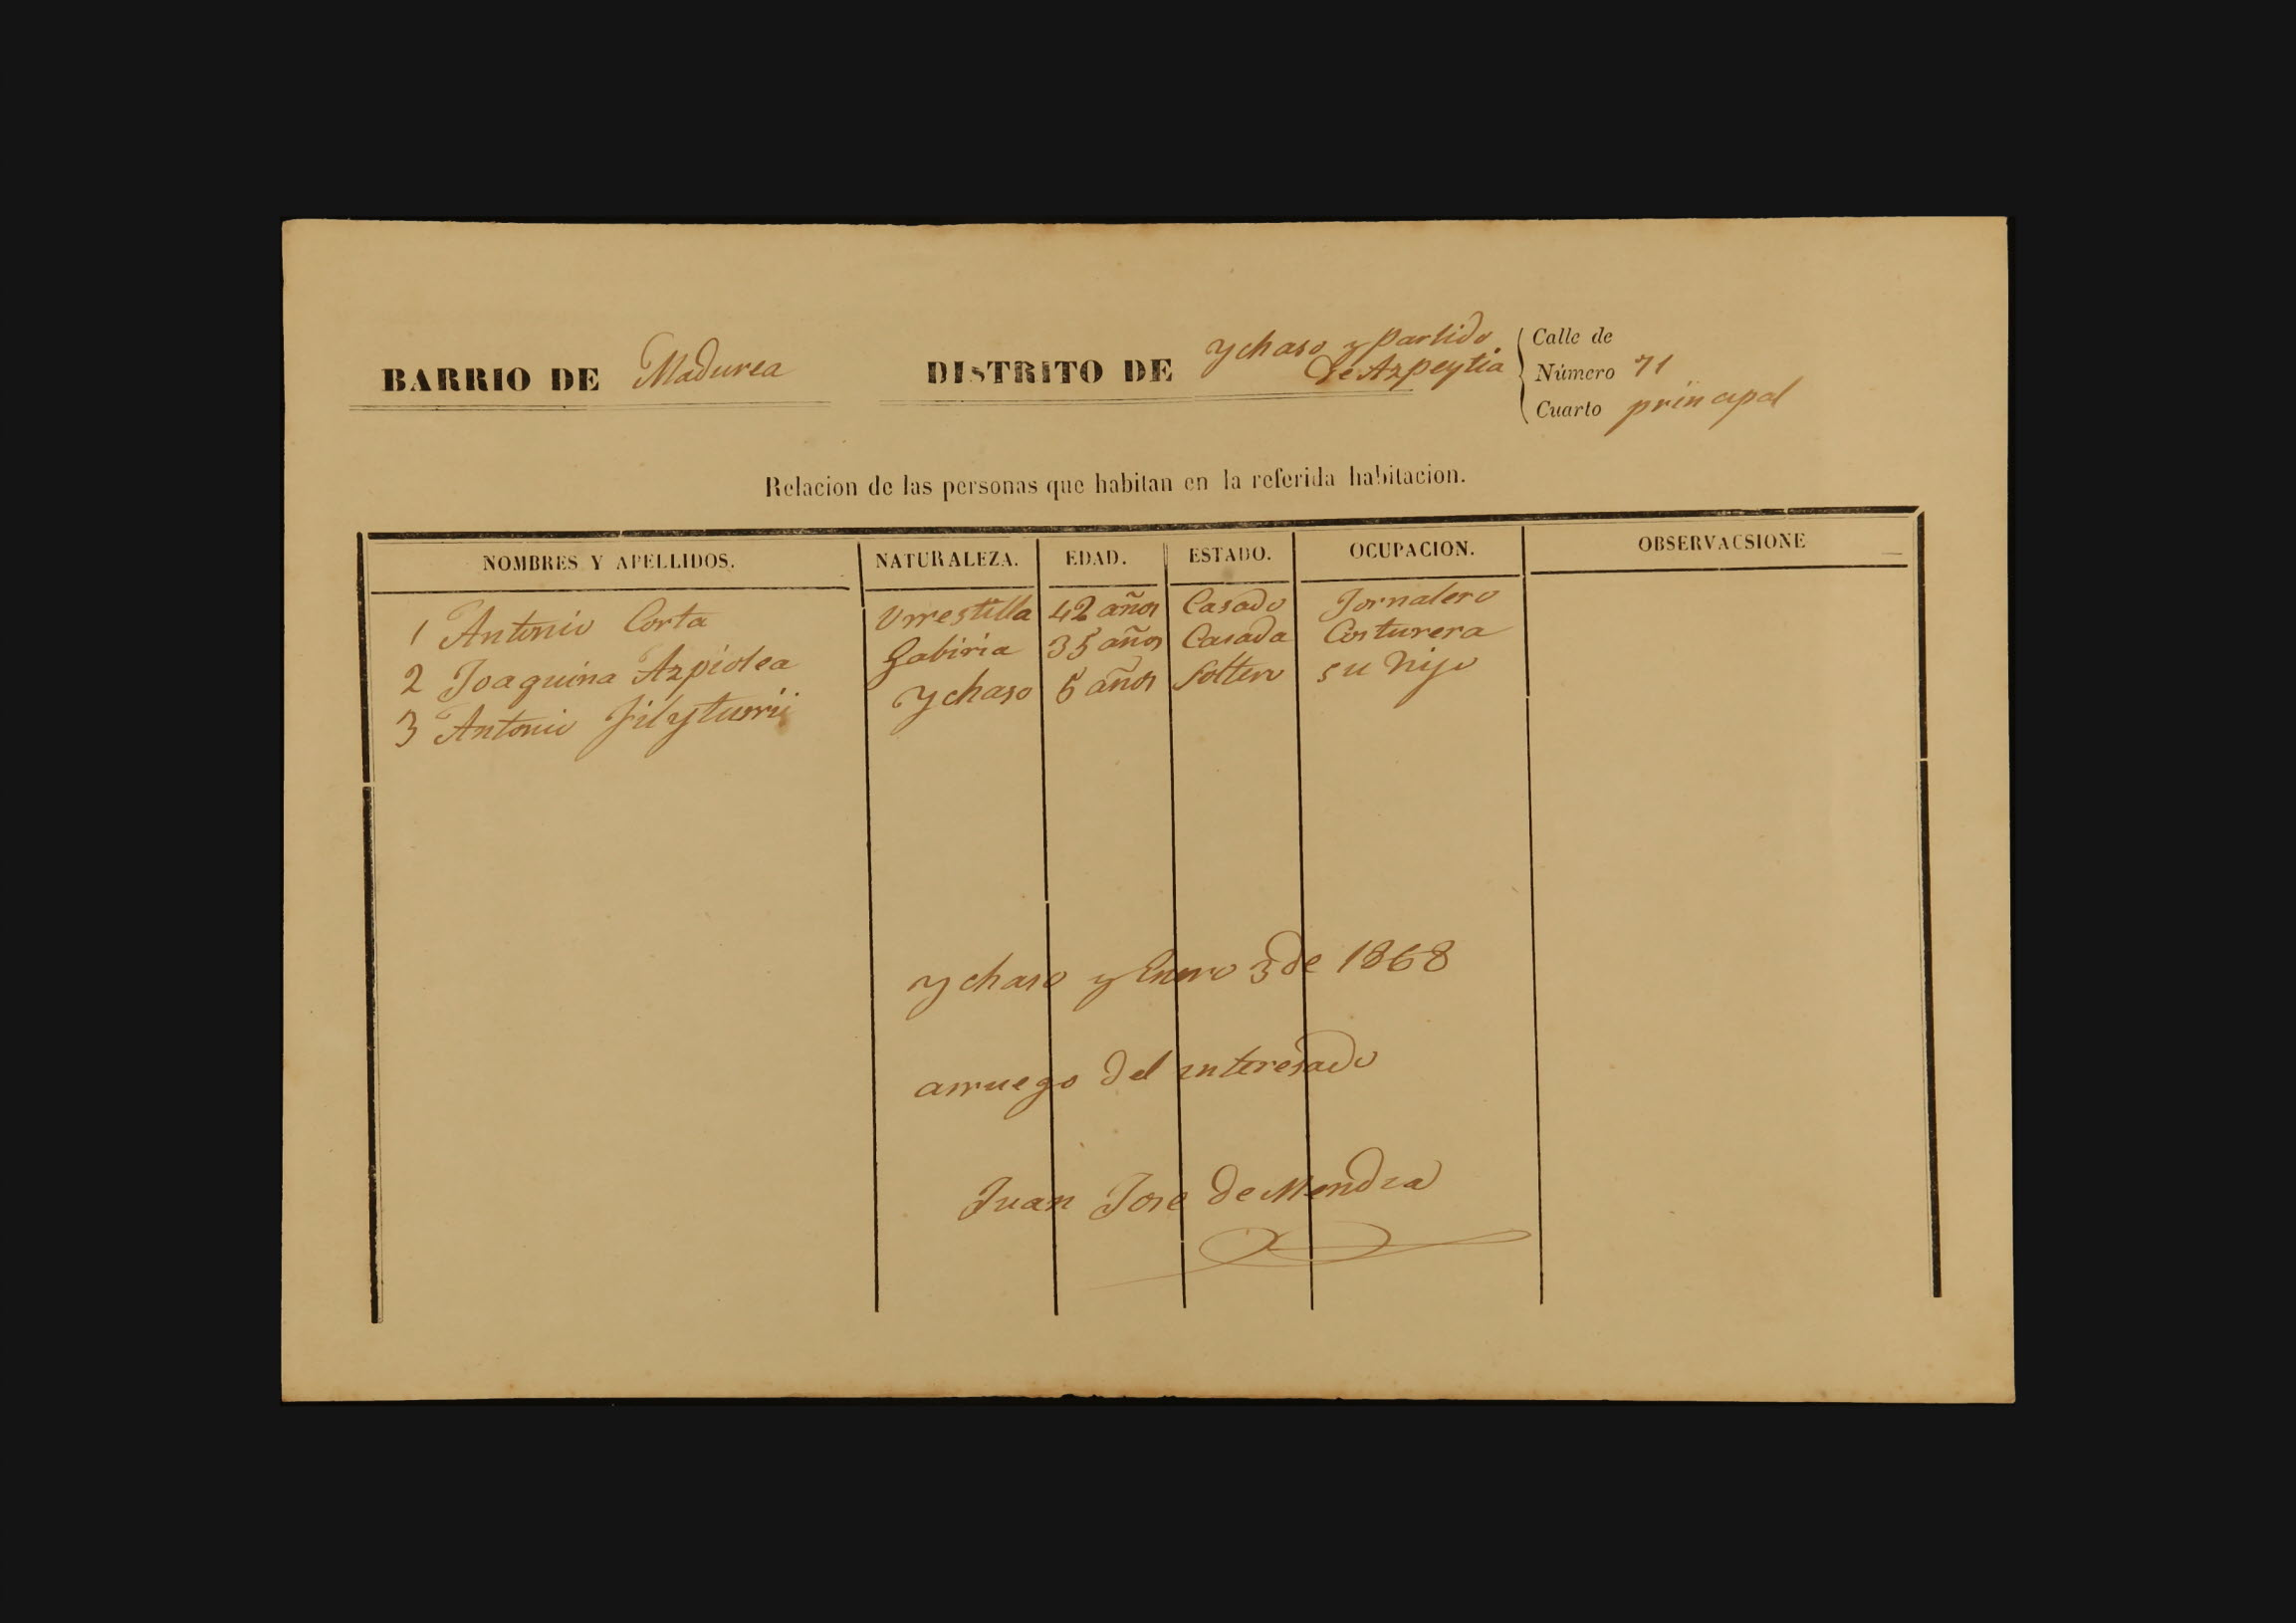 BARRIO DE Madurea DISTRITO DE Ychaso y partido
de Azpeytia
Calle de
Número 71
Cuarto principal
Relacion de las personas que habitan en la referida habitacion.
NOMBRES Y APELLIDOS. NATURALEZA. EDAD. ESTADO. OCUPACION. OBSERVACSIONE
1 Antonio Corta Urrestilla 42 años Casado Jornalero
2 Joaquina Azpiolea Gabiria 35 años Casada Costurera
3 Antonio Ychaso 5 años Soltero su hijo
Ychaso y Enero 3 de 1868
arruego del interesado
Juan Jose de Mendia